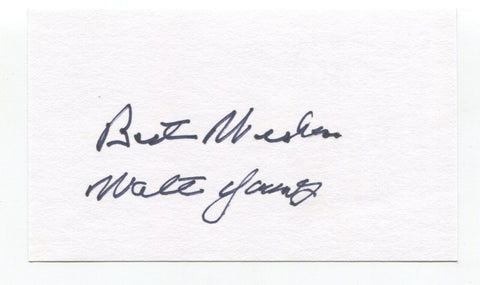 Best Wishes
Walt Young